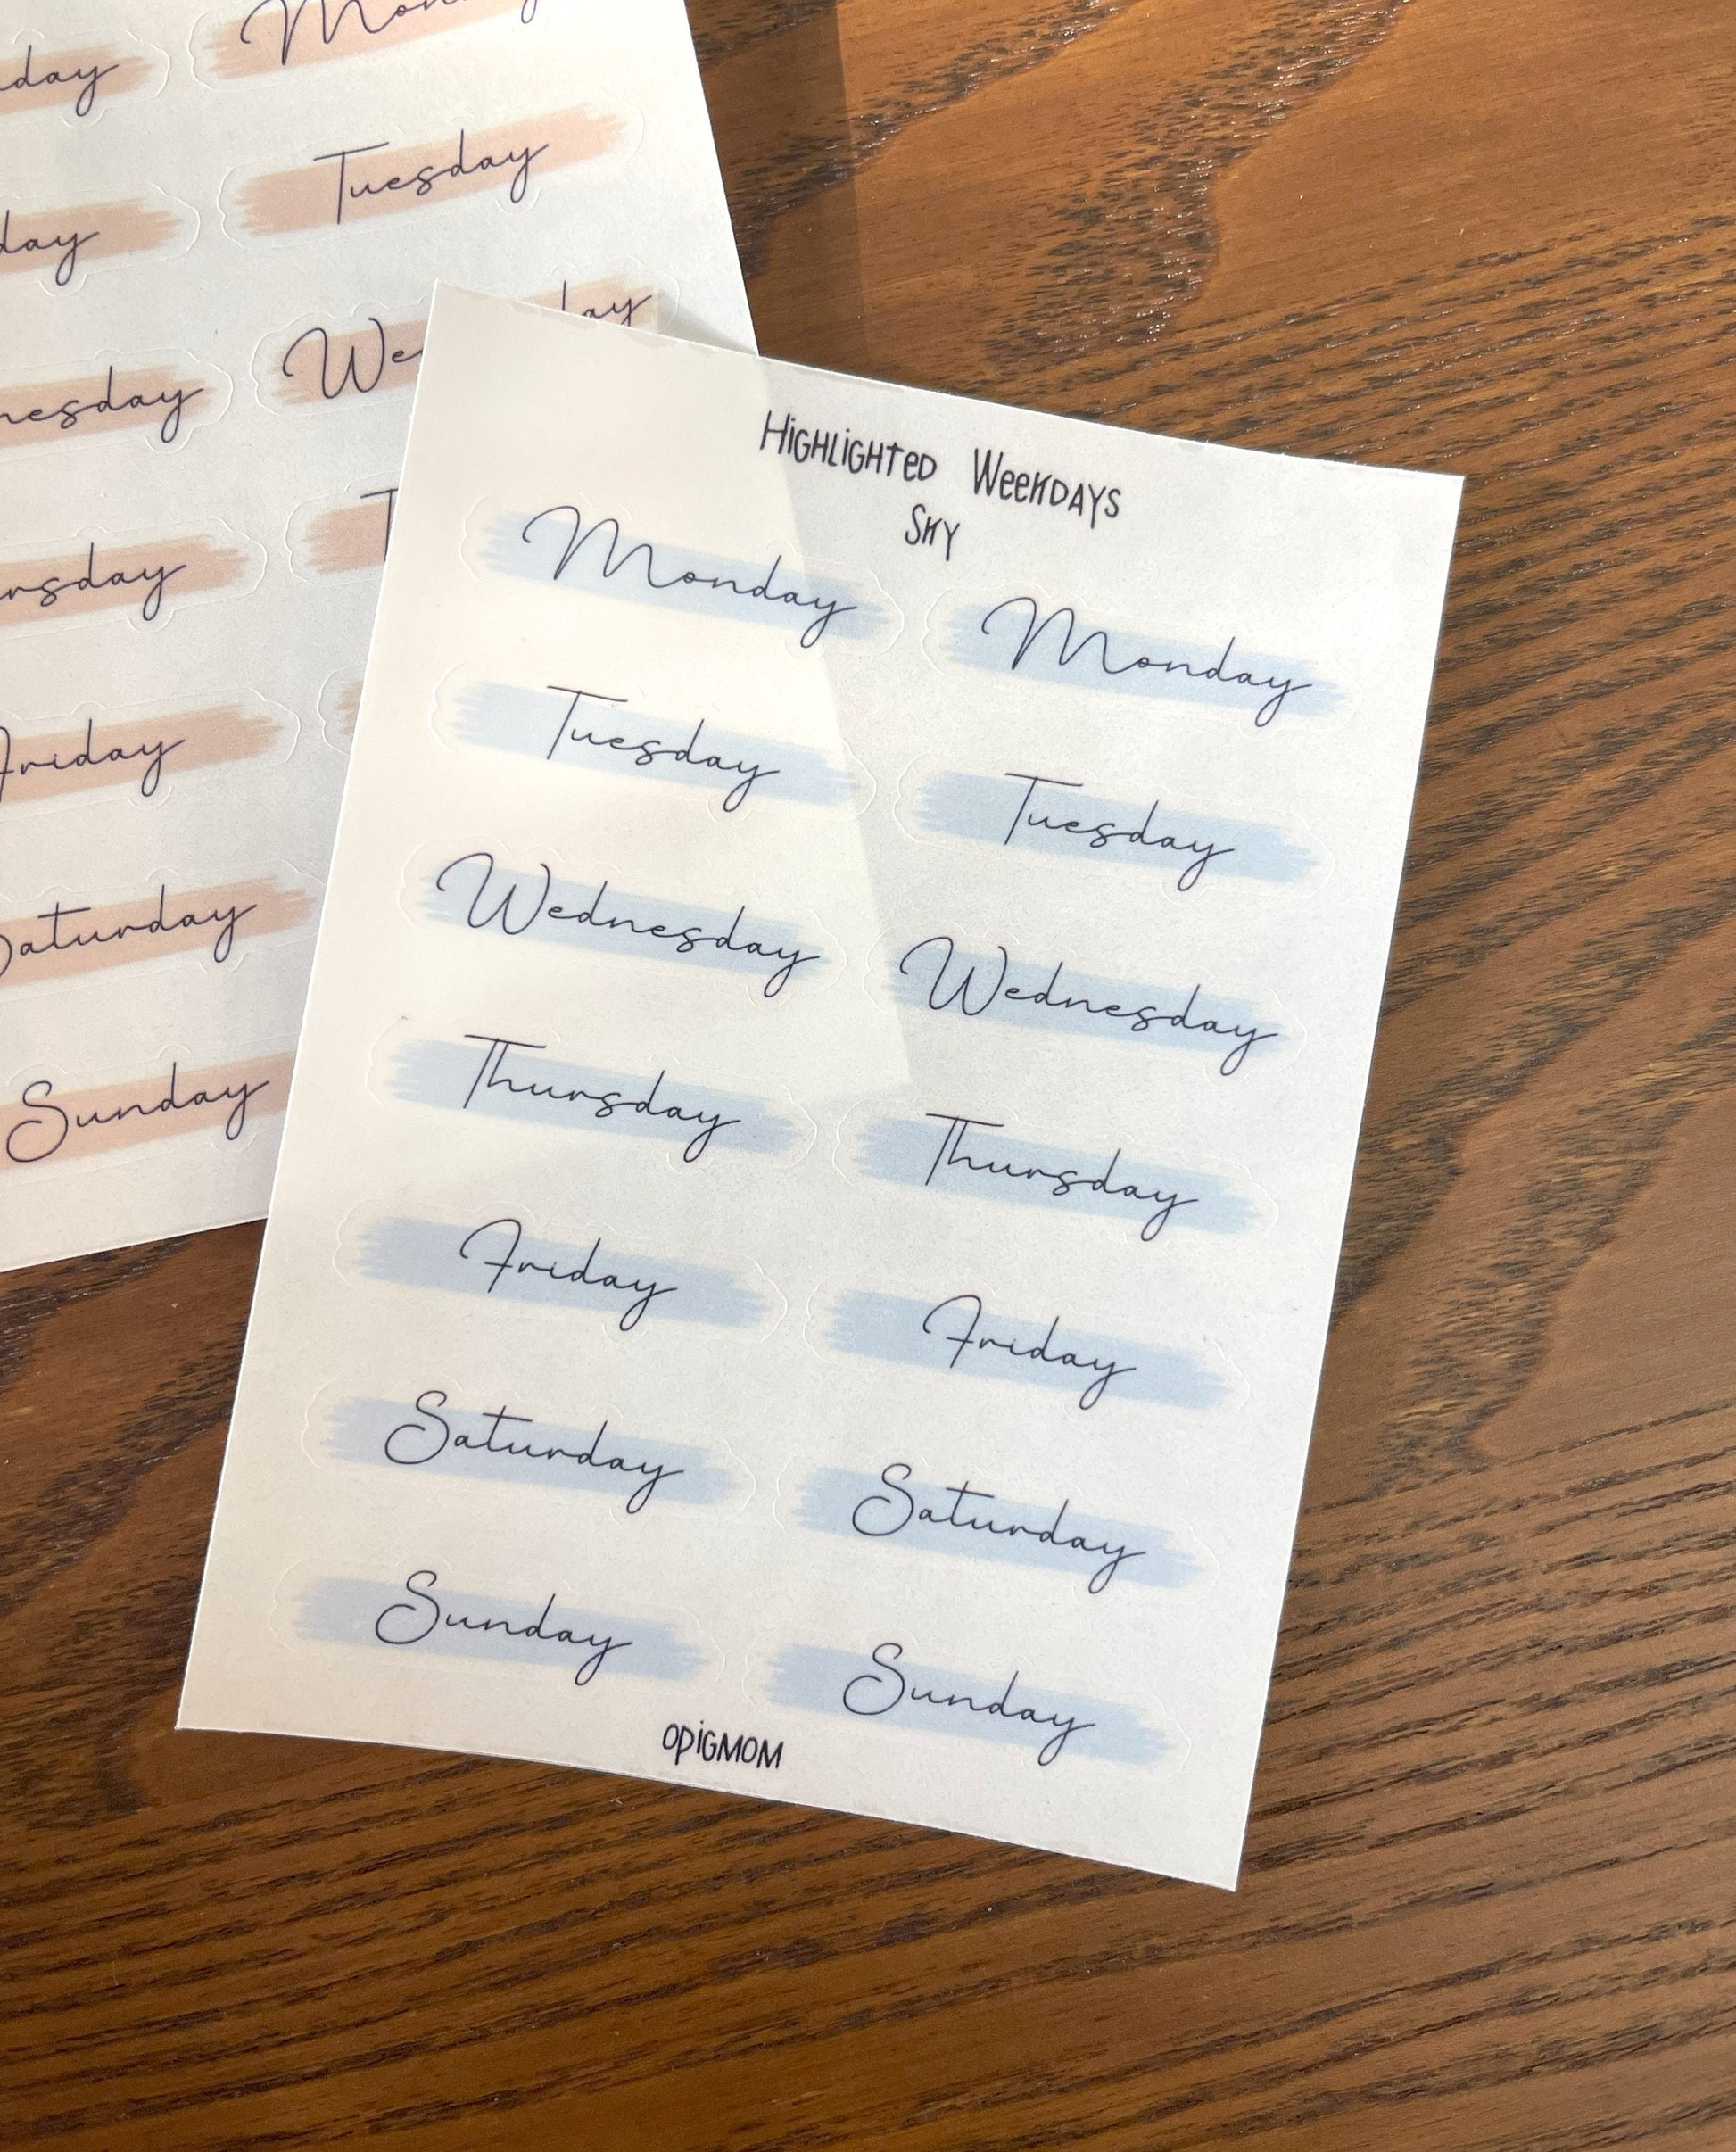 Monday
day
Tuesday
day
We
ay
nesday
T
rsday
Friday
Saturday
Sunday
HiGHLiGHTeD WeeKDAYS
SKY
Monday Monday
Tuesday Tuesday
Wednesday Wednesday
Thursday Thursday
Friday Friday
Saturday Saturday
Sunday Sunday
OPiGMOM